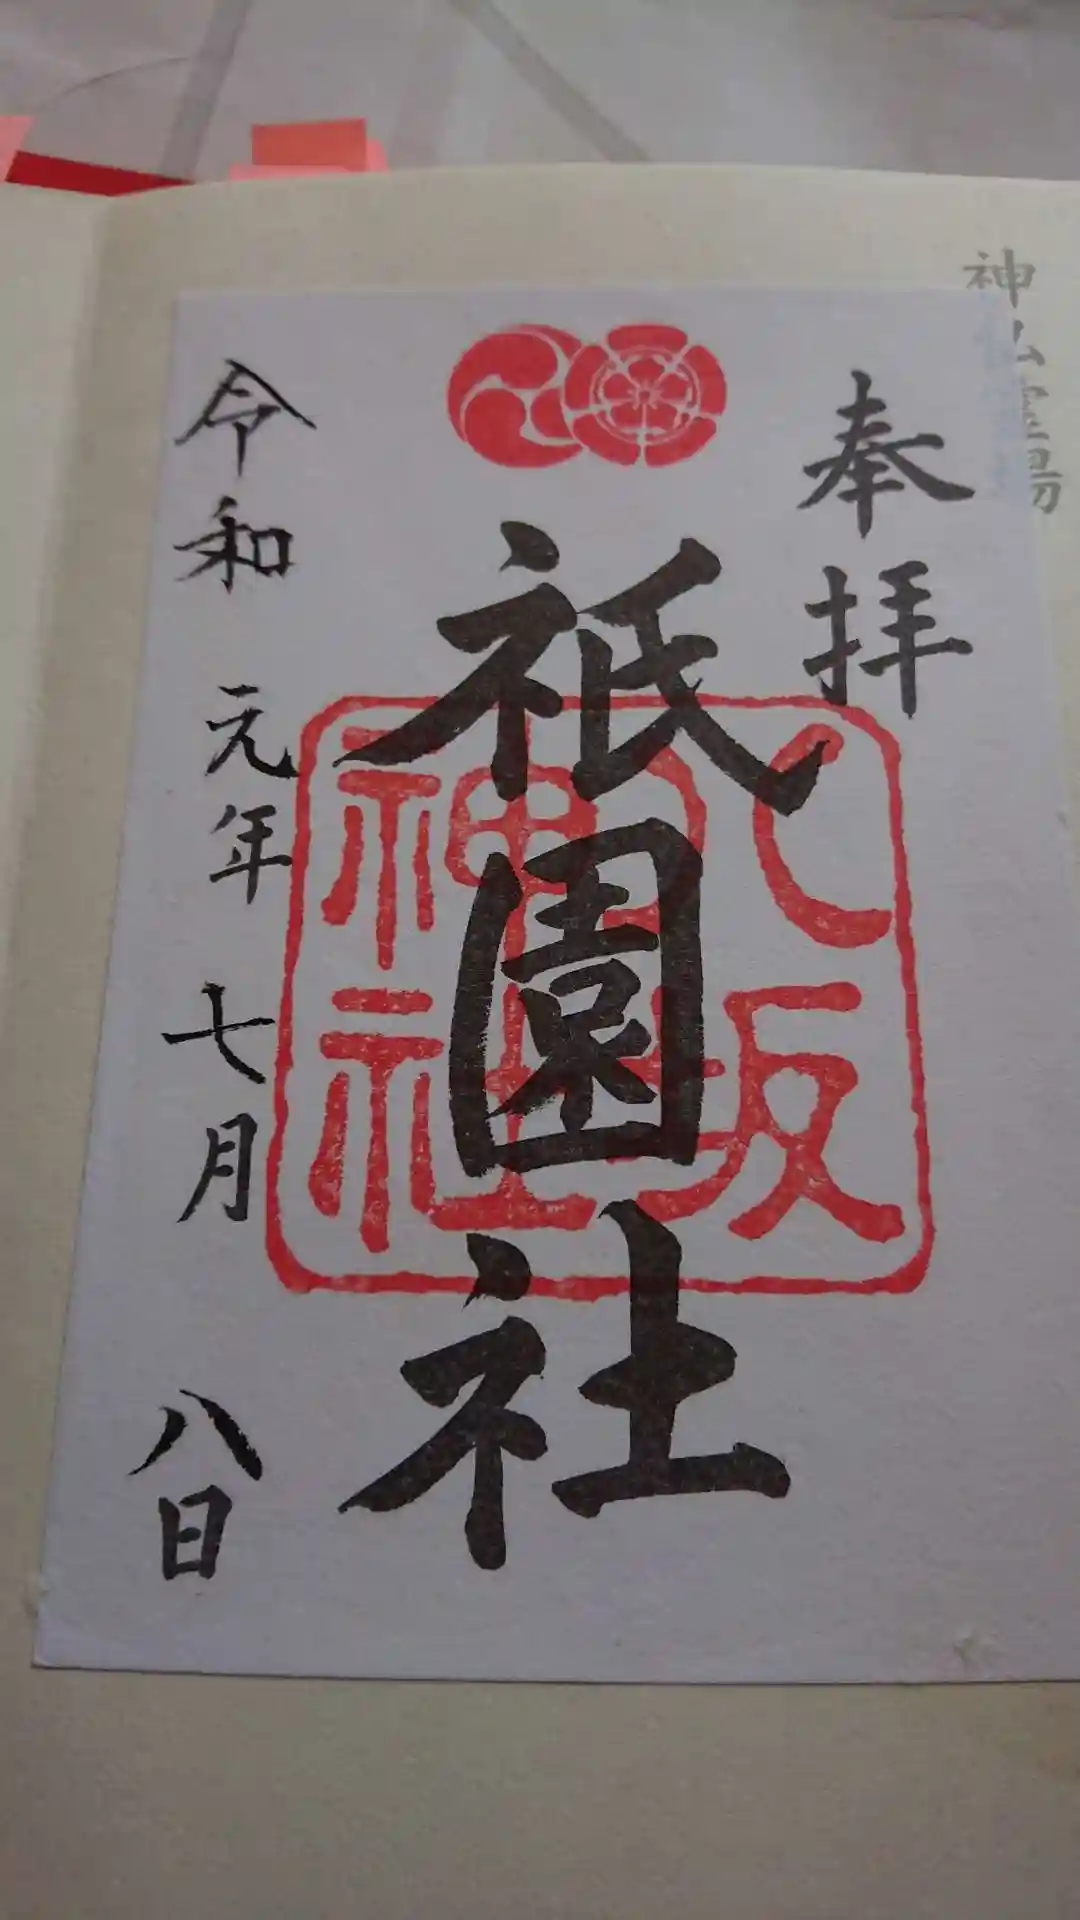 神仏霊場
奉拝
祇園社
八坂神社
令和元年七月八日